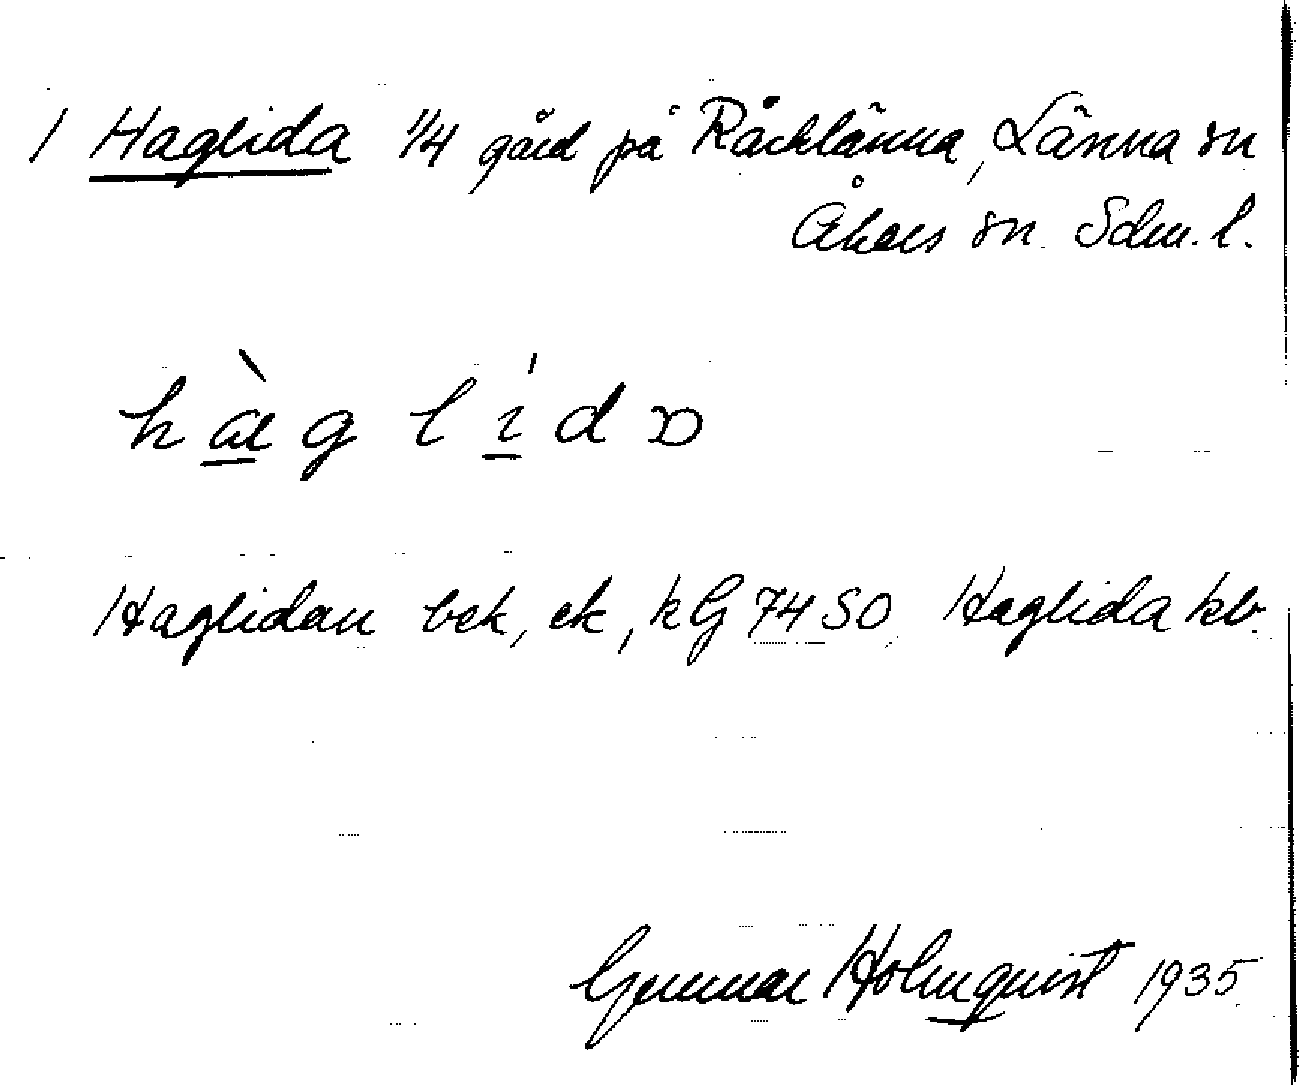 1 Haglida 1/4 gård på Råcklänna, Länna sn
Åkers sn. Sdm. l.
hàg lída
Haglidan bek, ek, kG 74 SO Haglida kb.
Gunnar Holmquist 1935